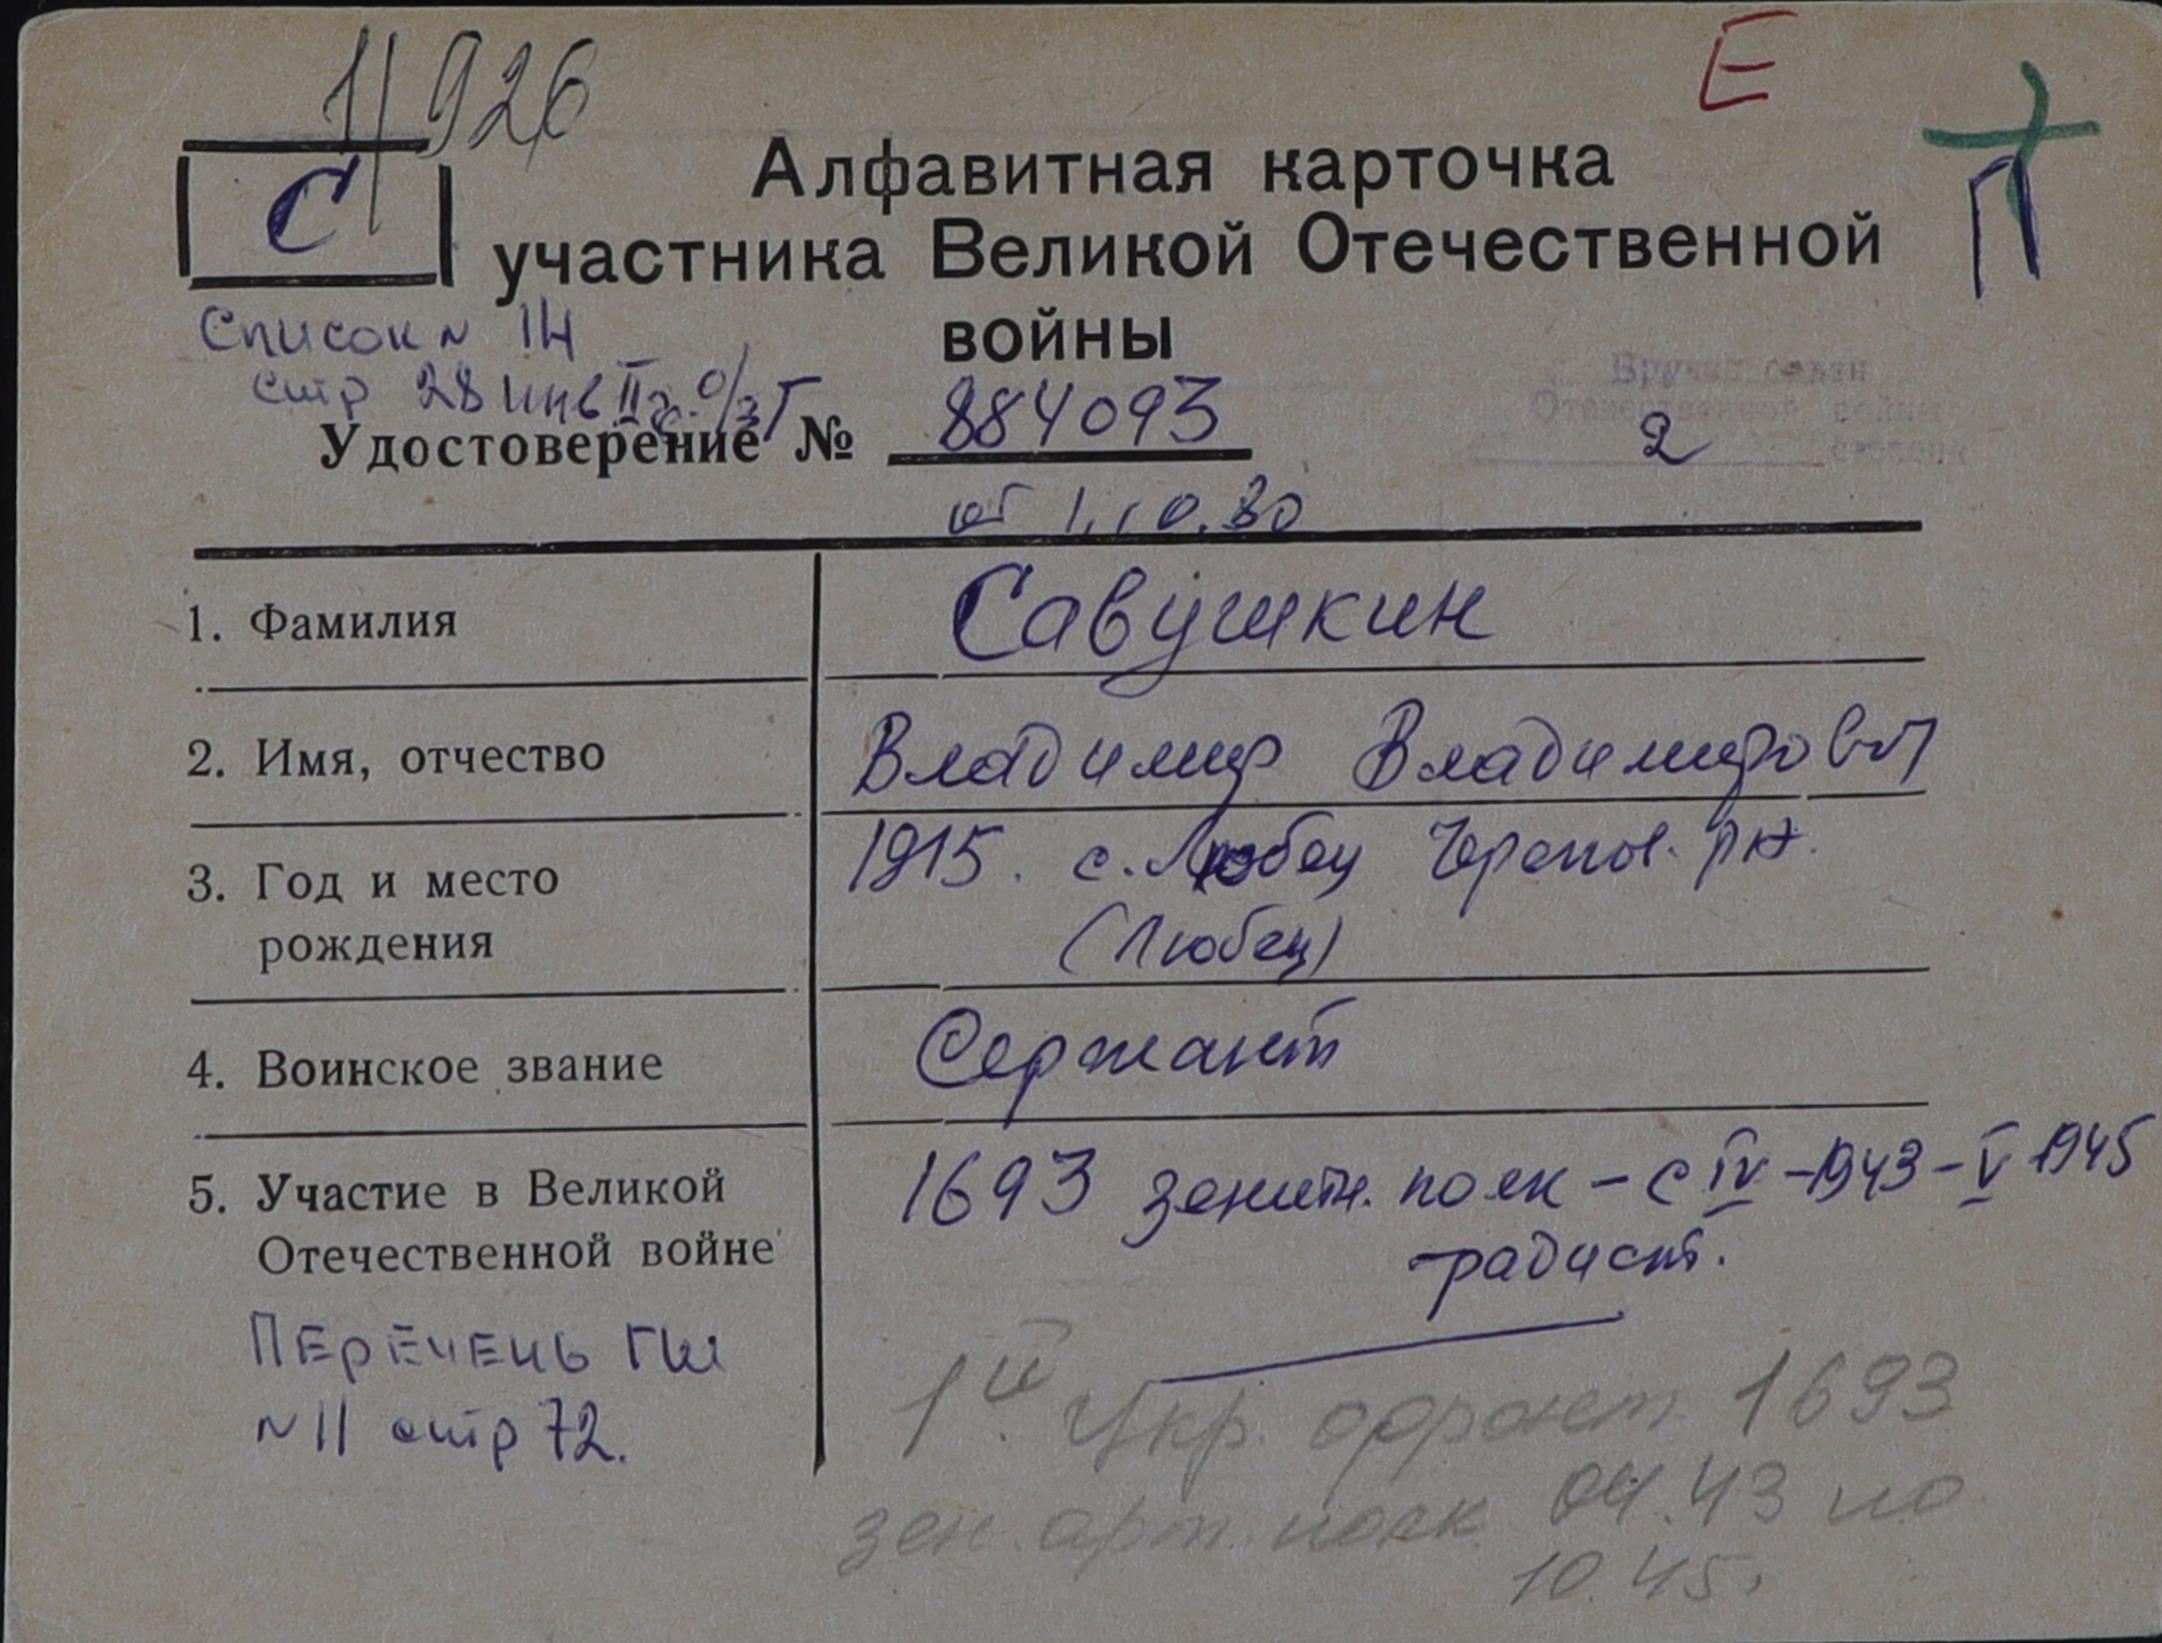 1/926
Е
С
П
Алфавитная карточка
участника Великой Отечественной
войны
Список N 14
стр 28 инв II гр. О/ЗГ
Вручен орден
Отечественной войны
2 степени
Удостоверение № 884093
от 1.10.80
1. Фамилия Савушкин
2. Имя, отчество Владимир Владимирович
3. Год и место 1915. с. Любец Черепов. р-н.
рождения (Любец)
4. Воинское звание Сержант
5. Участие в Великой 1693 зенитн. полк - с IV - 1943 - V 1945
Отечественной войне радист.
ПЕРЕЧЕНЬ ГШ
N 11 стр 72.
1й Укр. фронт 1693
зен. арт. полк 04.43 по
10.45.